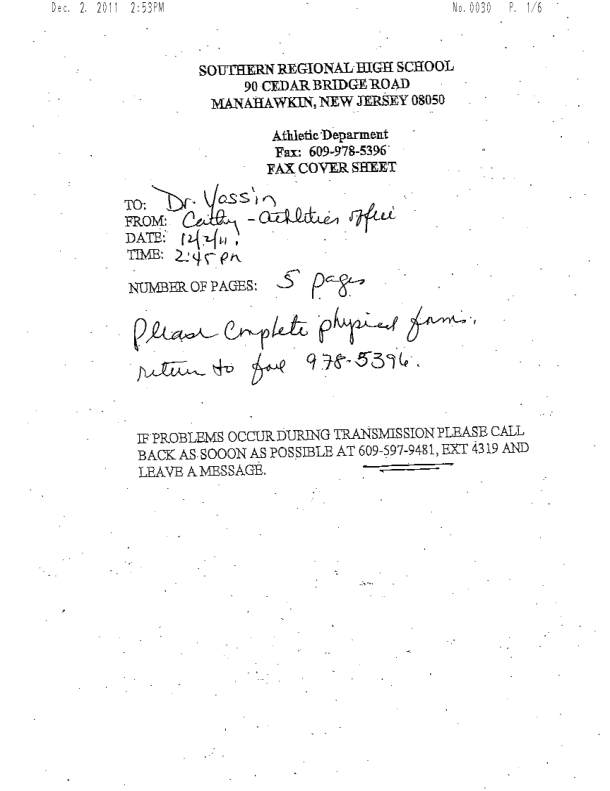 Dec. 2. 2011 2:53PM No. 0030 P. 1/6
SOUTHERN REGIONAL HIGH SCHOOL
90 CEDAR BRIDGE ROAD
MANAHAWKIN, NEW JERSEY 08050
Athletic Deparment
Fax: 609-978-5396
FAX COVER SHEET
TO: Dr. Yassin
FROM: Cathy - athletics office
DATE: 12/2/11
TIME: 2:45 pm
NUMBER OF PAGES: 5 pages
Please Complete physical forms.
return to fax 978-5396.
IF PROBLEMS OCCUR DURING TRANSMISSION PLEASE CALL
BACK AS SOOON AS POSSIBLE AT 609-597-9481, EXT 4319 AND
LEAVE A MESSAGE.